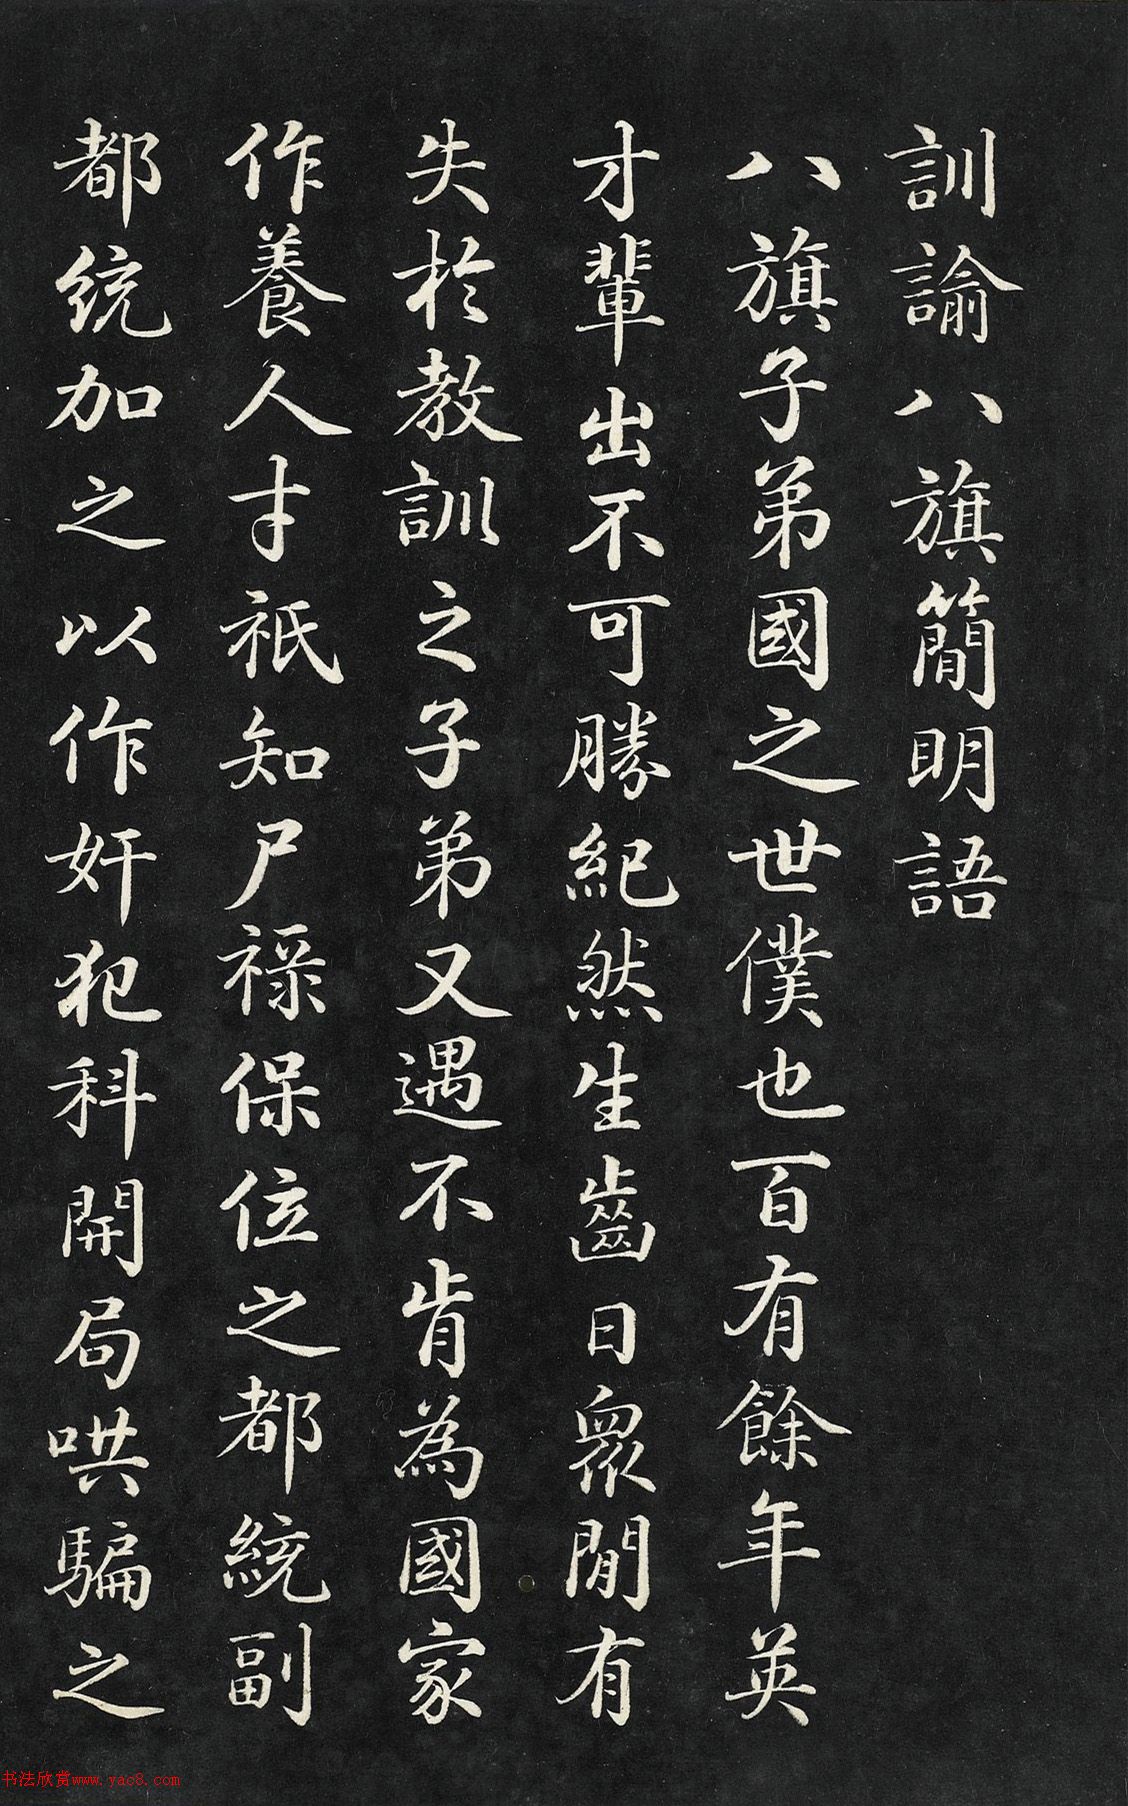 訓諭八旗簡明語
八旗子弟國之世僕也百有餘年英
才輩出不可勝紀然生齒日眾間有
失於教訓之子弟又遇不肯為國家
作養人才祇知尸祿保位之都統副
都統加之以作奸犯科開局哄騙之
书法欣赏www.yac8.com